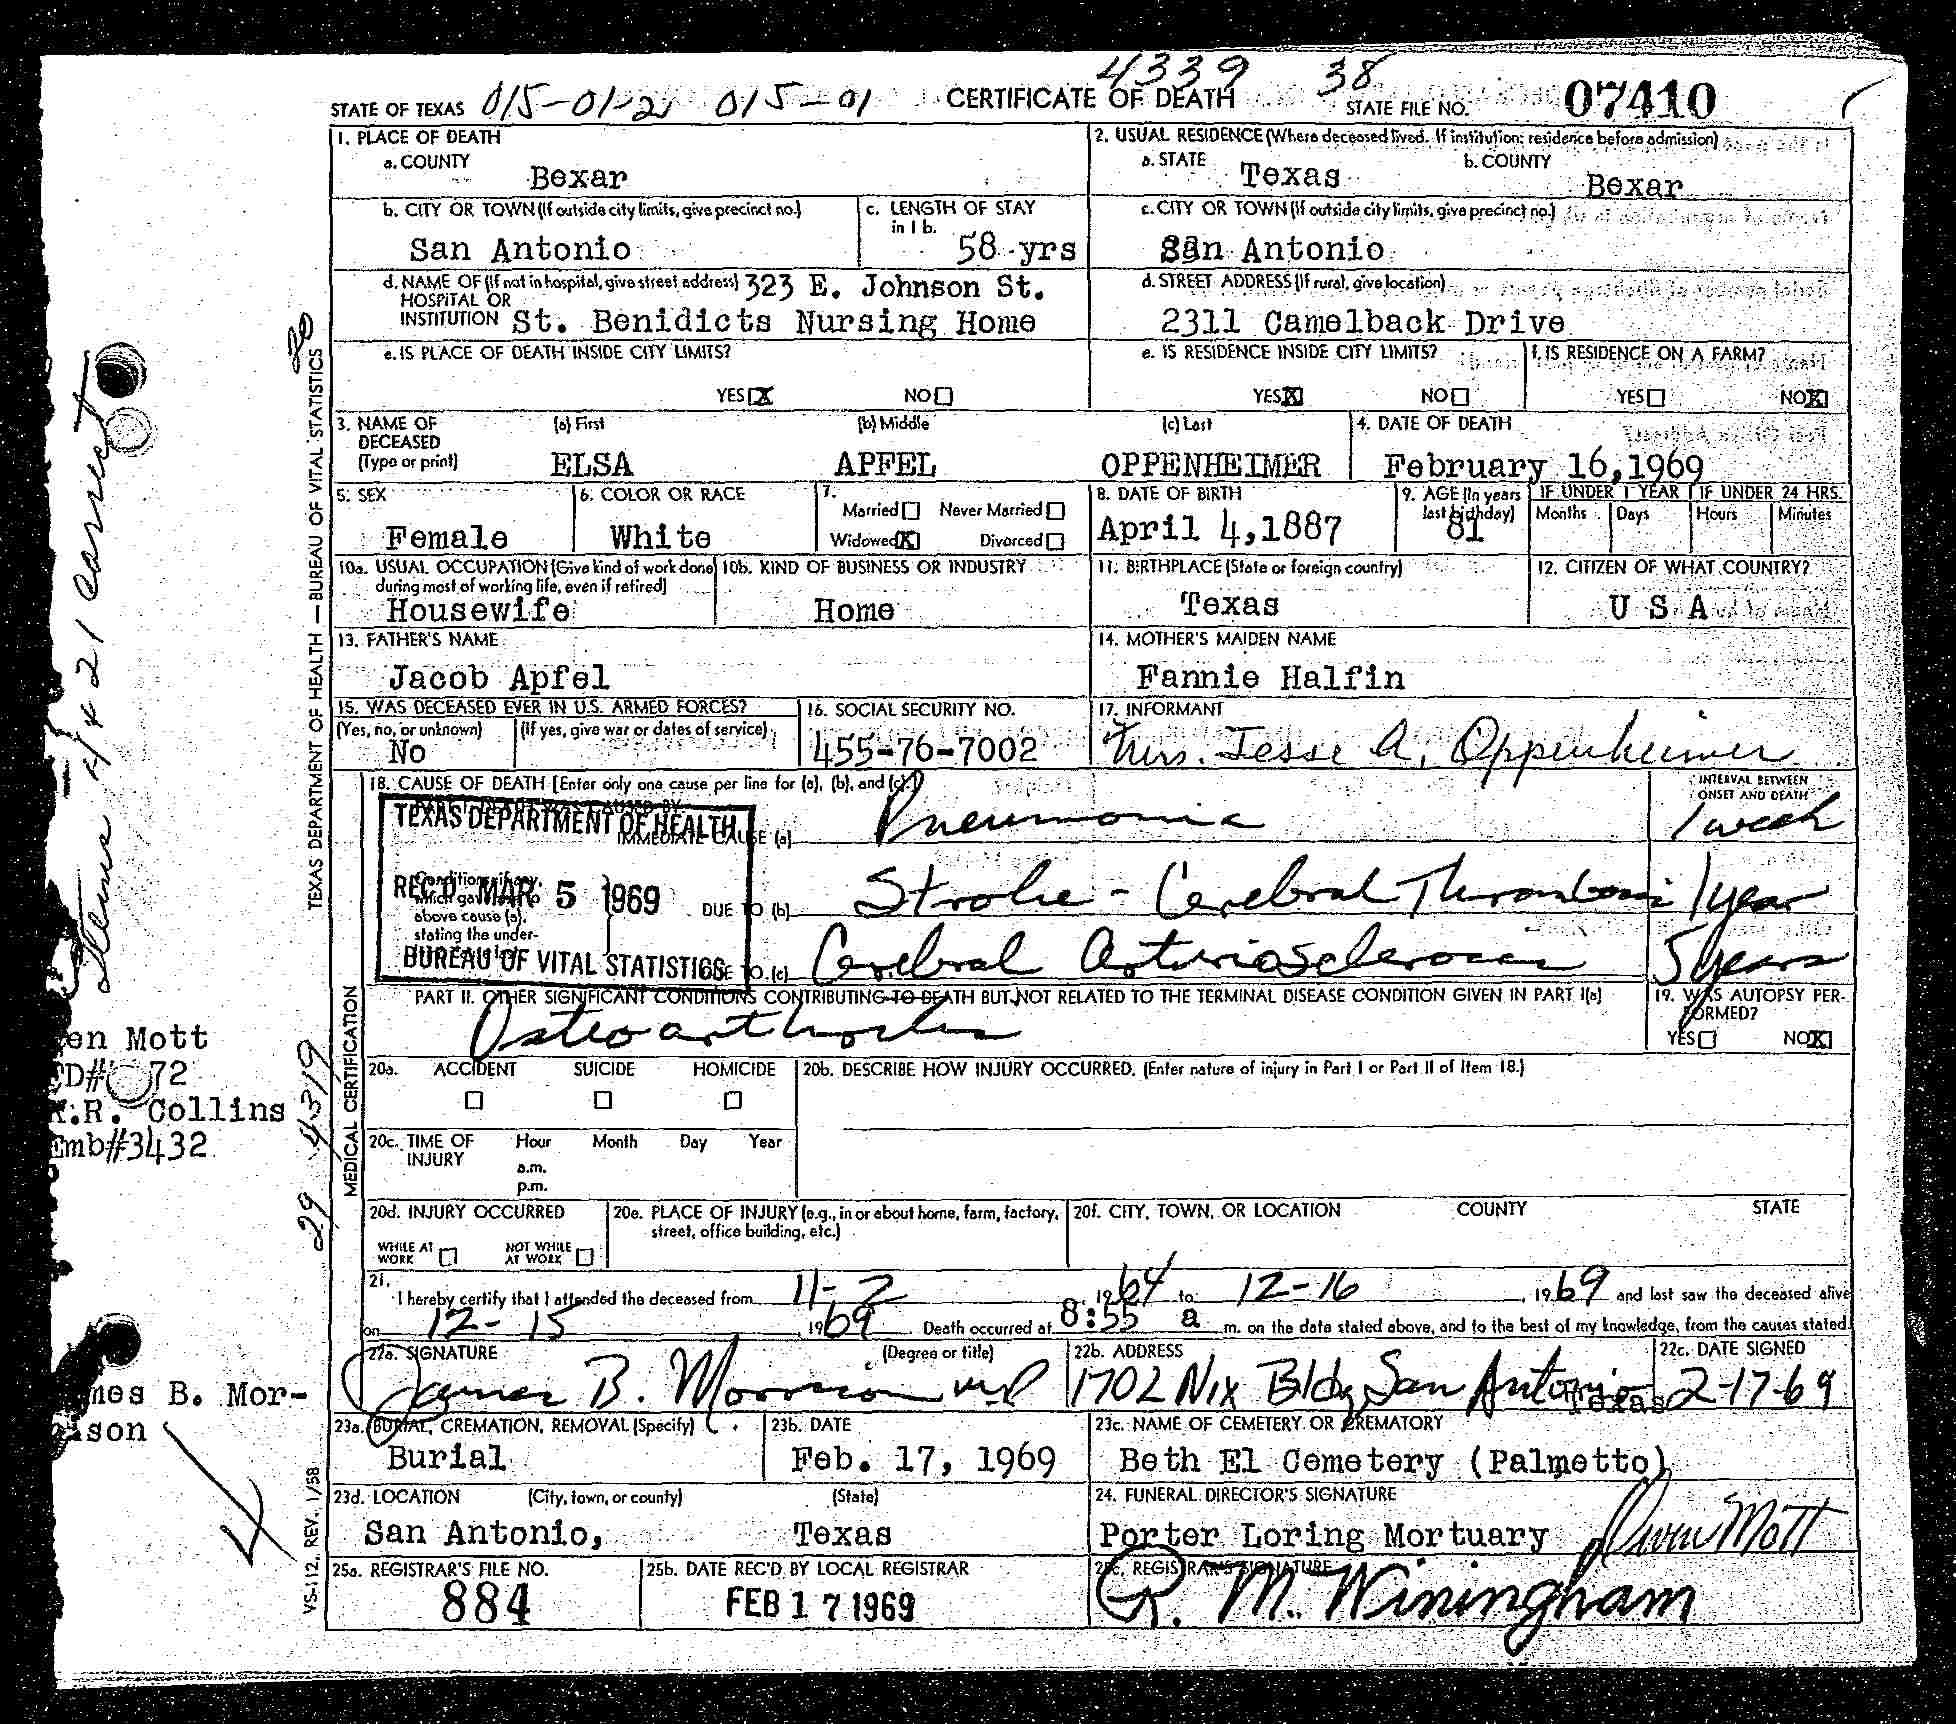 4339 38
STATE OF TEXAS 015-01-2 015-01 CERTIFICATE OF DEATH STATE FILE NO. 07410
1. PLACE OF DEATH
a. COUNTY
Bexar
2. USUAL RESIDENCE (Where deceased lived. If institution: residence before admission)
a. STATE
Texas
b. COUNTY
Bexar
b. CITY OR TOWN (If outside city limits, give precinct no.)
San Antonio
c. LENGTH OF STAY
in 1 b.
58 yrs
c. CITY OR TOWN (If outside city limits, give precinct no.)
San Antonio
d. NAME OF (If not in hospital, give street address) 323 E. Johnson St.
HOSPITAL OR
INSTITUTION St. Benidicts Nursing Home
d. STREET ADDRESS (If rural, give location)
2311 Camelback Drive
e. IS PLACE OF DEATH INSIDE CITY LIMITS?
YES X NO
e. IS RESIDENCE INSIDE CITY LIMITS?
YES X NO
f. IS RESIDENCE ON A FARM?
YES NO X
3. NAME OF
DECEASED
(Type or print)
(a) First
ELSA
(b) Middle
APFEL
(c) Last
OPPENHEIMER
4. DATE OF DEATH
February 16,1969
5. SEX
Female
6. COLOR OR RACE
White
7.
Married Never Married
Widowed X Divorced
8. DATE OF BIRTH
April 4,1887
9. AGE (In years
last birthday)
81
IF UNDER 1 YEAR
Months Days
IF UNDER 24 HRS.
Hours Minutes
10a. USUAL OCCUPATION (Give kind of work done
during most of working life, even if retired)
Housewife
10b. KIND OF BUSINESS OR INDUSTRY
Home
11. BIRTHPLACE (State or foreign country)
Texas
12. CITIZEN OF WHAT COUNTRY?
U S A
13. FATHER'S NAME
Jacob Apfel
14. MOTHER'S MAIDEN NAME
Fannie Halfin
15. WAS DECEASED EVER IN U.S. ARMED FORCES?
(Yes, no, or unknown)
No
(If yes, give war or dates of service)
16. SOCIAL SECURITY NO.
455-76-7002
17. INFORMANT
Mrs. Jesse A. Oppenheimer
18. CAUSE OF DEATH [Enter only one cause per line for (a), (b), and (c).]
INTERVAL BETWEEN
ONSET AND DEATH
TEXAS DEPARTMENT OF HEALTH
REC'D MAR 5 1969
BUREAU OF VITAL STATISTICS
IMMEDIATE CAUSE (a) Pneumonia 1 week
Conditions, if any,
which gave rise to
above cause (a),
stating the under-
DUE TO (b) Stroke - Cerebral Thrombosis 1 year
DUE TO (c) Cerebral Arteriosclerosis 5 years
PART II. OTHER SIGNIFICANT CONDITIONS CONTRIBUTING TO DEATH BUT NOT RELATED TO THE TERMINAL DISEASE CONDITION GIVEN IN PART I(a)
Osteoarthritis
19. WAS AUTOPSY PER-
FORMED?
YES NO X
20a. ACCIDENT SUICIDE HOMICIDE
20b. DESCRIBE HOW INJURY OCCURRED. (Enter nature of injury in Part I or Part II of Item 18.)
20c. TIME OF
INJURY
Hour Month Day Year
a.m.
p.m.
20d. INJURY OCCURRED
WHILE AT
WORK
NOT WHILE
AT WORK
20e. PLACE OF INJURY (e.g., in or about home, farm, factory,
street, office building, etc.)
20f. CITY, TOWN, OR LOCATION COUNTY STATE
21.
I hereby certify that I attended the deceased from 11-2, 1964 to 12-16, 1969 and last saw the deceased alive
on 12-15, 1969. Death occurred at 8:55 a m. on the date stated above, and to the best of my knowledge, from the causes stated.
22a. SIGNATURE (Degree or title)
James B. Morrison MD
22b. ADDRESS
1702 Nix Bldg San Antonio
Texas
22c. DATE SIGNED
2-17-69
23a. BURIAL, CREMATION, REMOVAL (Specify)
Burial
23b. DATE
Feb. 17, 1969
23c. NAME OF CEMETERY OR CREMATORY
Beth El Cemetery (Palmetto)
23d. LOCATION (City, town, or county) (State)
San Antonio, Texas
24. FUNERAL DIRECTOR'S SIGNATURE
Porter Loring Mortuary Owen Mott
25a. REGISTRAR'S FILE NO.
884
25b. DATE REC'D BY LOCAL REGISTRAR
FEB 17 1969
25c. REGISTRAR'S SIGNATURE
R. M. Winingham
TEXAS DEPARTMENT OF HEALTH — BUREAU OF VITAL STATISTICS
20
MEDICAL CERTIFICATION
29 4319
VS-112, REV. 1/58
en Mott
D# 72
.R. Collins
Emb#3432
mes B. Mor-
ison